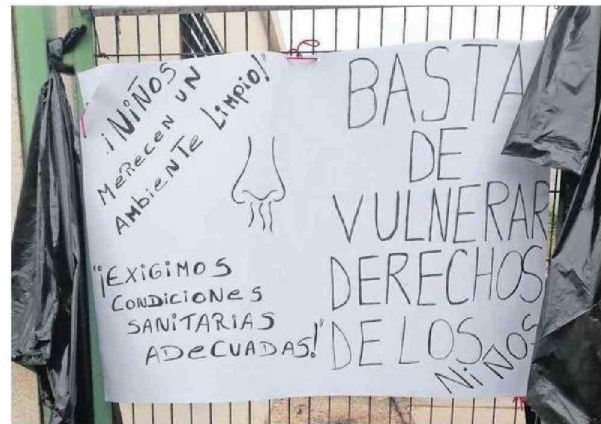 ¡NIÑOS
MERECEN UN
AMBIENTE LIMPIO!"
"¡EXIGIMOS
CONDICIONES
SANITARIAS
ADECUADAS!"
BASTA
DE
VULNERAR
DERECHOS
DE LOS
NIÑOS